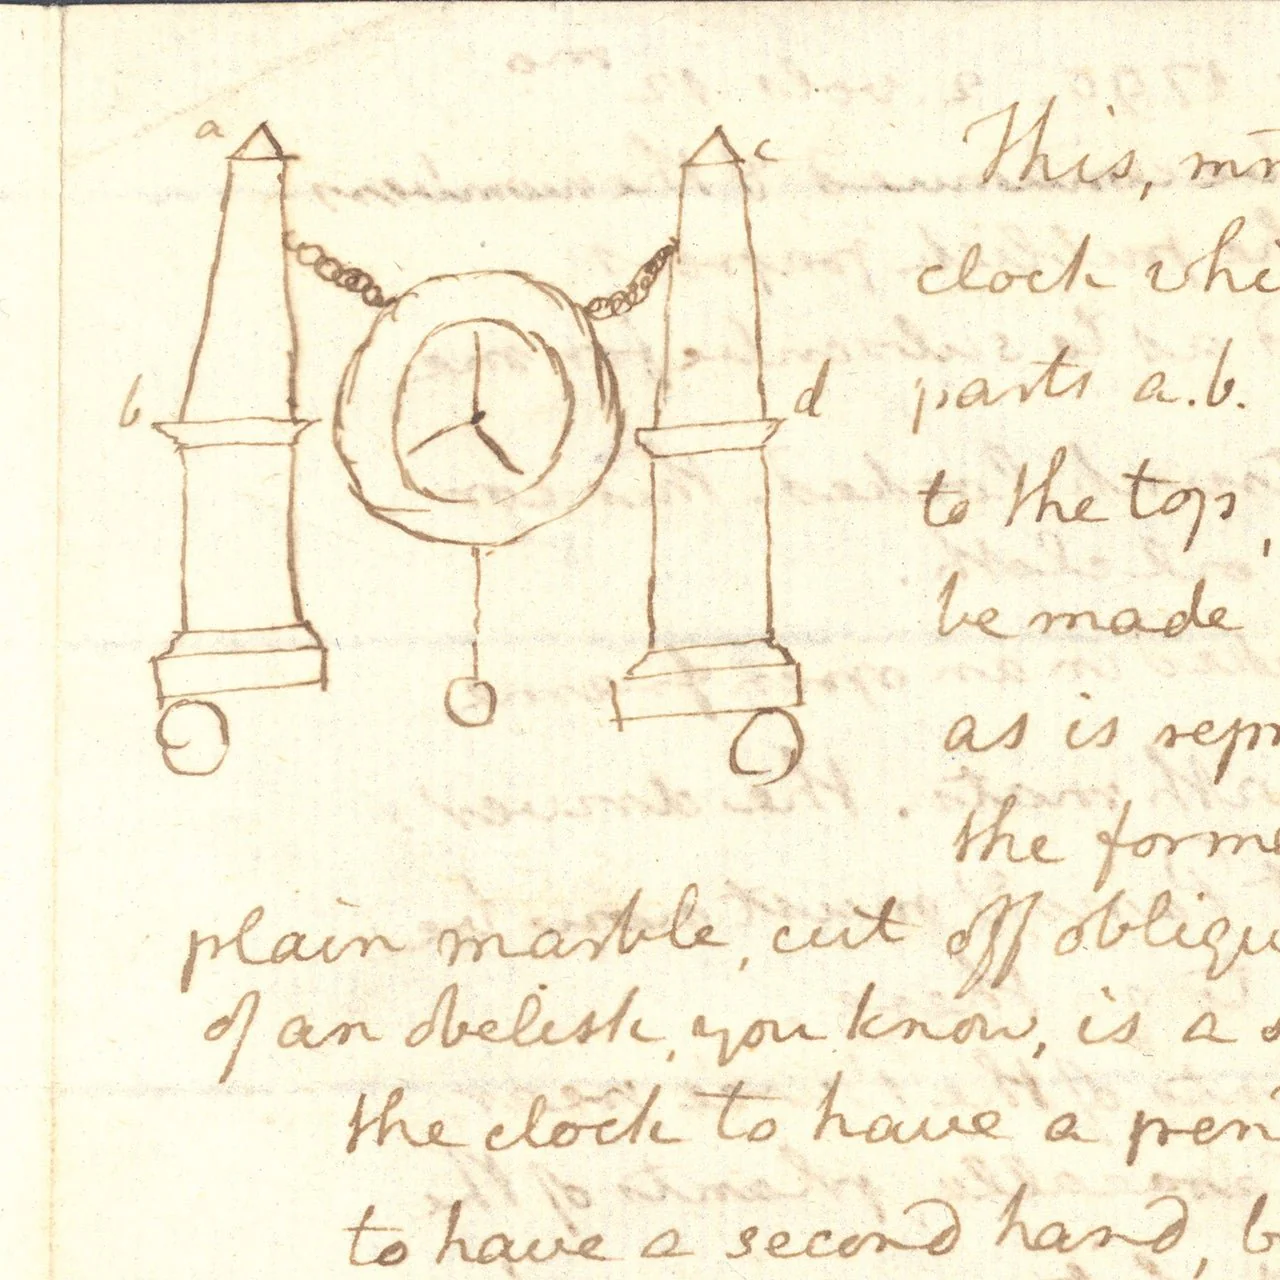 a
c
b
d
This, mr
clock whi
parts a.b.
to the top,
be made
as is repr
the forme
plain marble, cut off obliqu
of an obelisk, you know, is a s
the clock to have a pen
to have a second hand, b